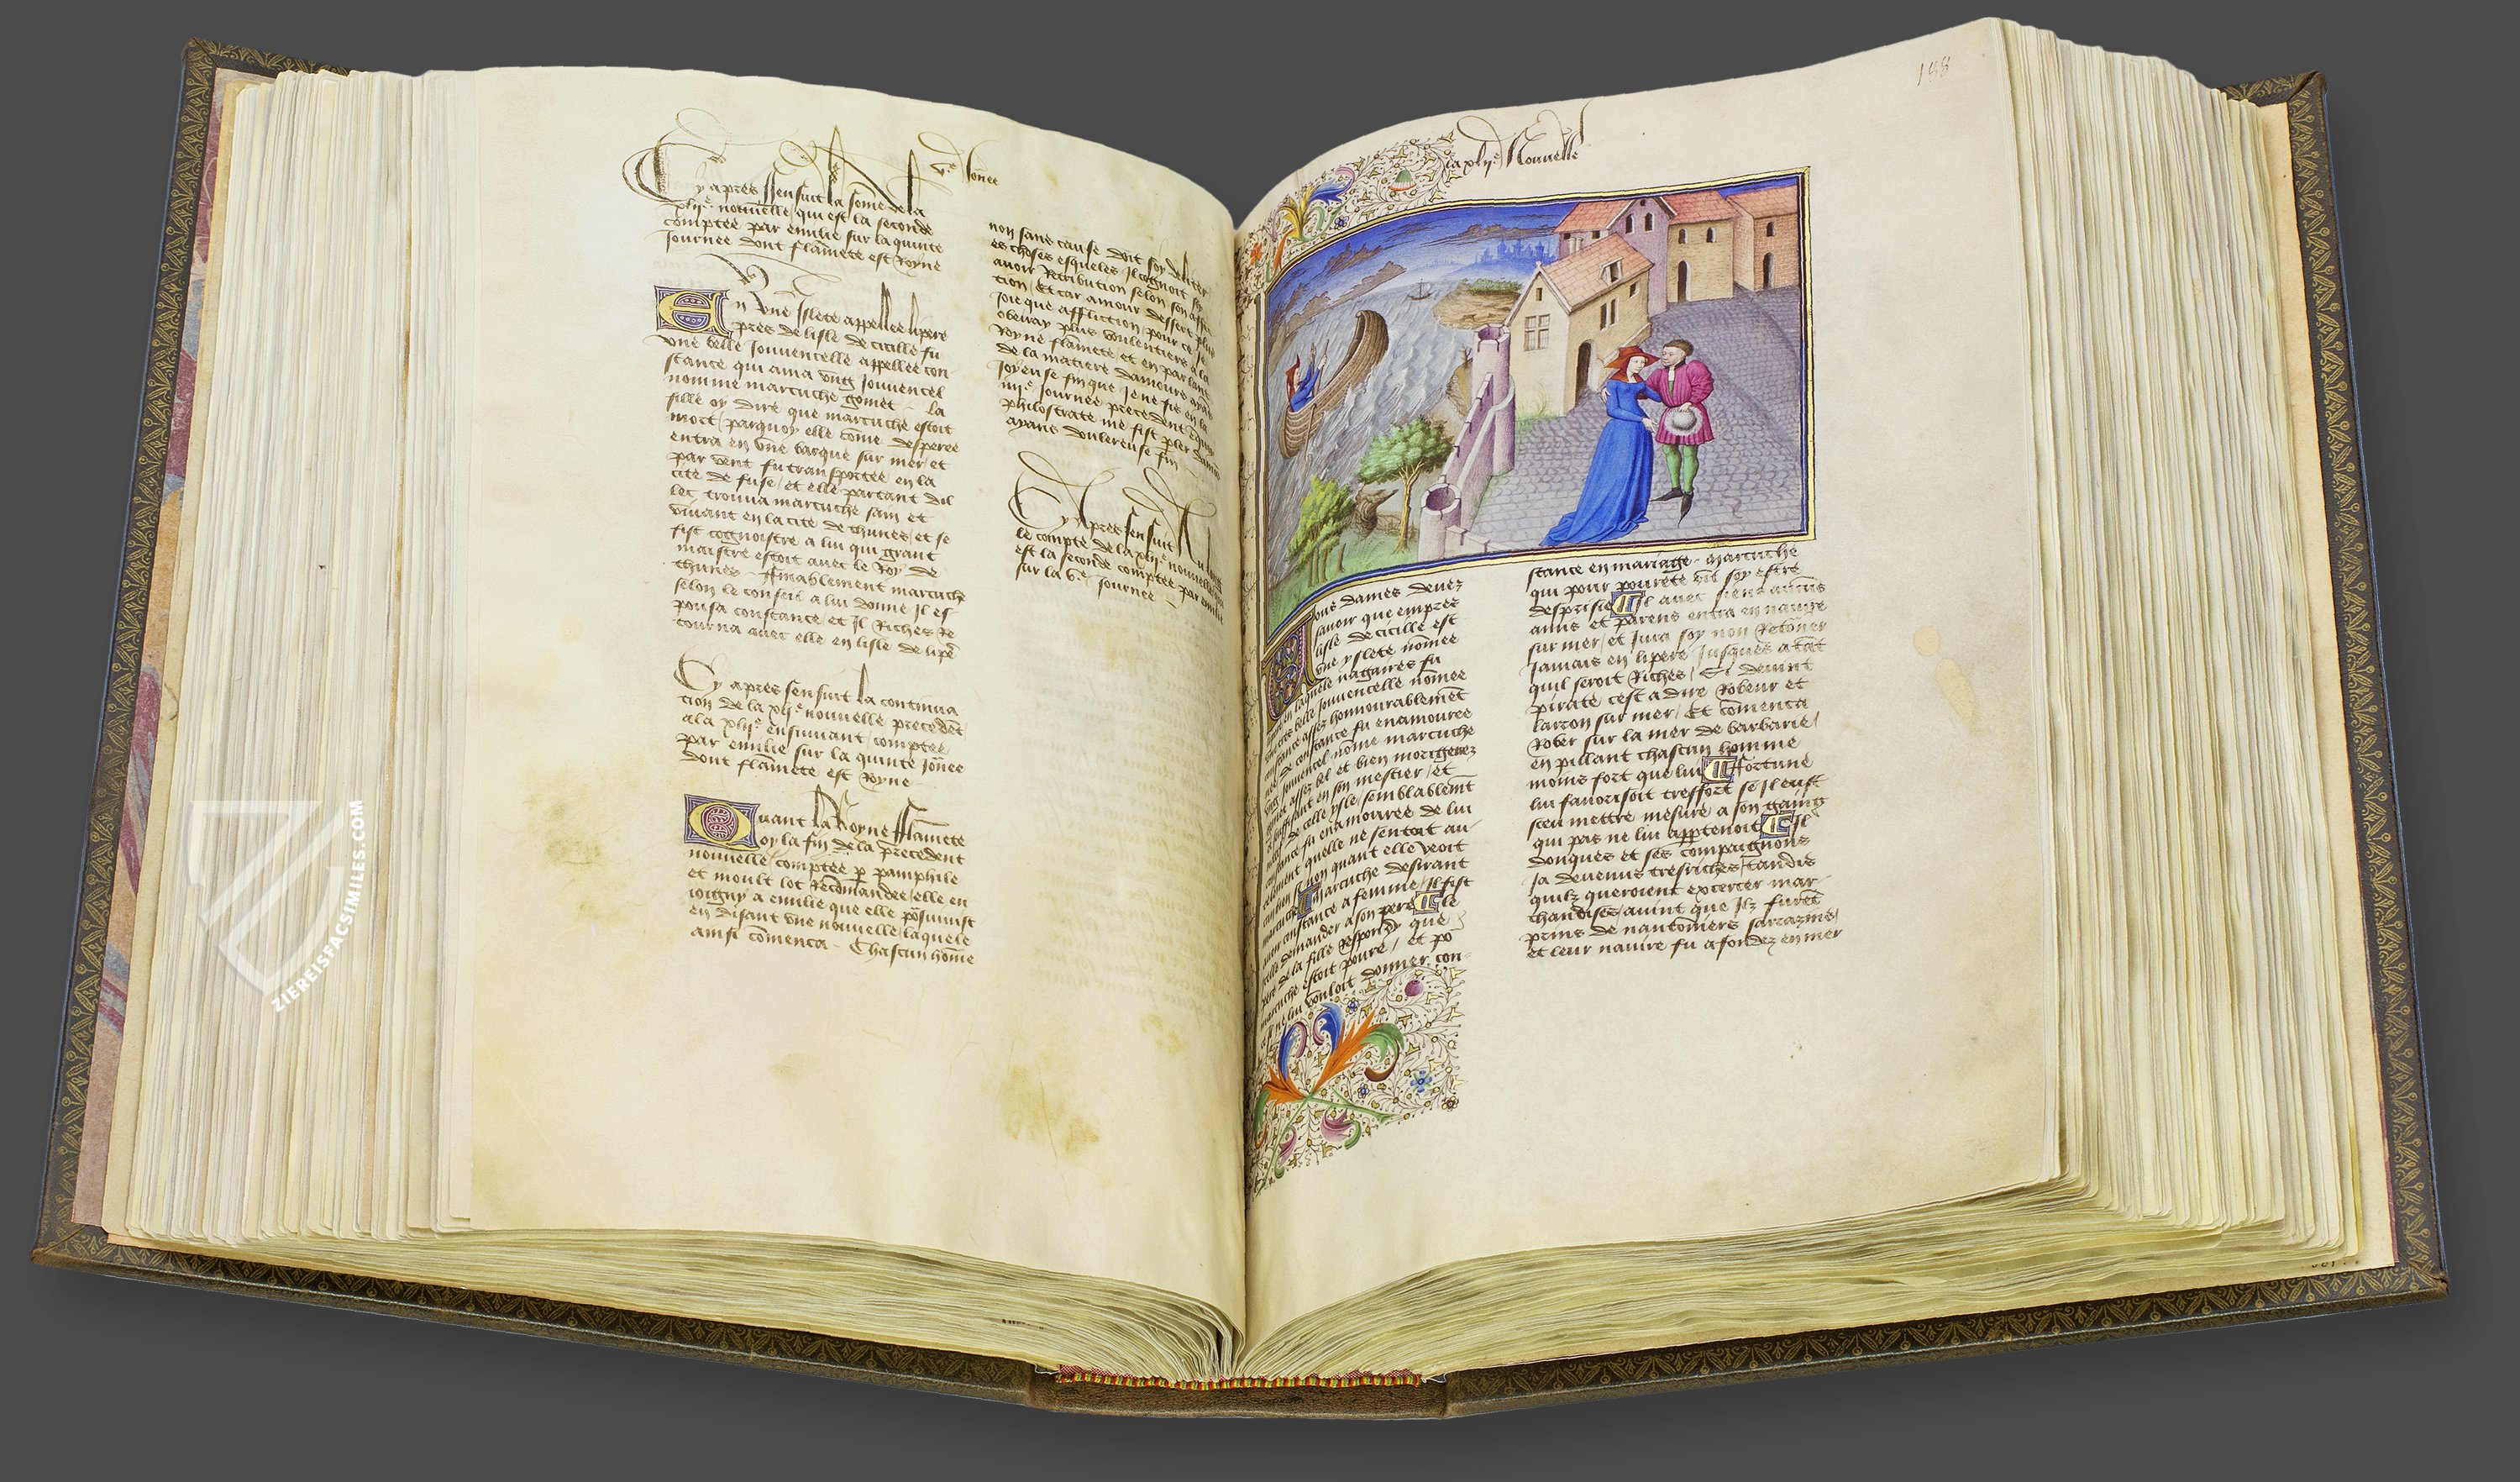 v.e Jo͞nee
Cy apres sensuit la so͞me de la
xlije nouuelle qui est la seconde
comptee par emilie sur la quinte
Journee dont flam͞ete est royne
En vne Islete appellee lipare
pres de lisle de cicille fu
vne belle Jouuencelle appellee con
stance qui ama vng Jouuencel
nomme martuche gomet - la
fille oy dire que martuche estoit
mort / parquoy elle co͞me desperee
entra en vne barque sur mer / et
par vent fu transportee en la
cite de suse / et elle partant dil
lec trouua martuche sain et
viuant en la cite de thunes / et se
fist cognoistre a lui qui grant
maistre estoit auec le Roy de
thunes - finablement martuche
selon le conseil a lui donne Il es
pousa constance / et Il riches re
tourna auec elle en lisle de lipe͞
Cy apres sensuit la continua
tion de la xlje nouuelle precede͞t
a la xlije ensuiuant / comptee
par emilie sur la quinte Jo͞nee
dont flam͞ete est royne
Quant la Royne flam͞ete
oy la fin de la precedent
nouuelle / comptee p͞ pamphile
et moult lot reco͞mandee / elle en
ioigny a emilie que elle po͞suiuist
en disant vne nouuelle / laquele
ainsi co͞menca - Chascun ho͞me
non sans cause doit soy deliter
es choses esqueles Il cognoit
auoir retribution selon son
tion / Et car amour dessert plus
Joie que affliction / pour ce Je
obeiray plus voulentiers a la
royne flam͞ete / et en parlant
de la matiere damours
Joyeuse fin que Je ne fis en la
iiije Journee precedent
philostrate me fist p͞ler
ayans douloreuse fin
Cy apres sensuit
le compte de la xlije nouuelle
est la seconde comptee par emilie
sur la v.e Journee -
188
la xlije Nouuelle
Vous dames deuez
sauoir que empres
lisle de cicille est
vne yslete nomee
en laquele nagaires fu
belle Jouuencelle nomee
constance assez honnourablem͞et
de constance fu enamouree
vng Jouuencel nome martuche
assez bel et bien morigenez
souffisant en son mestier / et
de celle ysle / semblablem͞t
constance fu enamouree de lui
quelle ne sentoit au
non quant elle veoit
martuche desirant
auoir constance a femme / Il fist
demander a son pere Le
pere de la fille respondy que
martuche estoit poure / et po͞
ce Il ne lui vouloit donner con
stance en mariage - martuche
qui pour pourete vit soy estre
desprisie Il auec siens aucu͞s
amis et parens entra en nauire
sur mer / et Jura soy non reto͞ner
Jamais en lipare / Jusques a ta͞t
quil seroit riches / Si deuint
pirate cest a dire robeur et
larron sur mer / Et co͞menca
rober sur la mer de barbarie /
en pillant chascun homme
moins fort que lui Fortune
lui fauorisoit tresfort se Il eust
sceu mettre mesure a son gaing
qui pas ne lui apptenoit Il
donques et ses compaignons
Ja deuenus tresriches / tandis
quilz queroient excercer mar
chandises / auint que Ilz fure͞t
prins de nautonniers sarrazins /
et leur nauire fu afondez en mer
ZIEREISFACSIMILES.COM